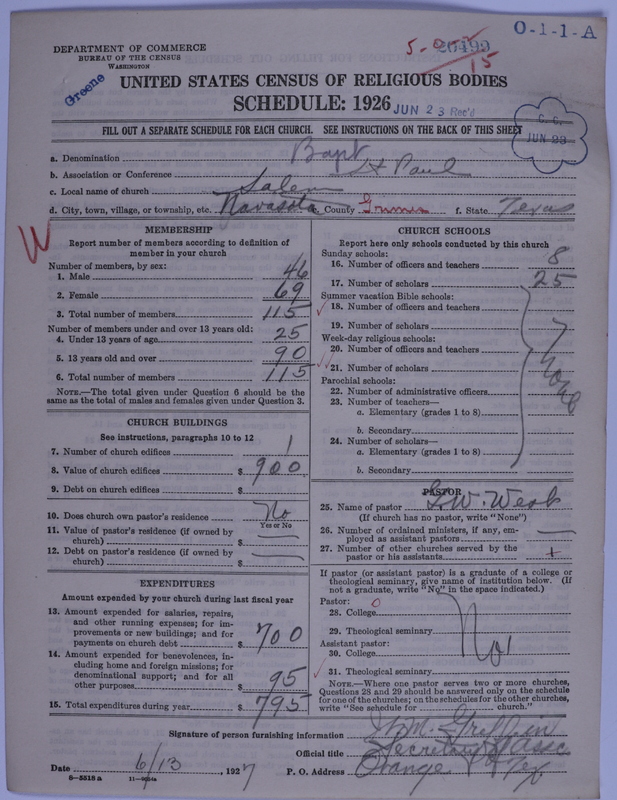 O-1-1-A
5-
20499
15
DEPARTMENT OF COMMERCE
BUREAU OF THE CENSUS
WASHINGTON
Greene
UNITED STATES CENSUS OF RELIGIOUS BODIES
SCHEDULE: 1926
JUN 23 Rec'd
FILL OUT A SEPARATE SCHEDULE FOR EACH CHURCH. SEE INSTRUCTIONS ON THE BACK OF THIS SHEET
JUN 23
a. Denomination Bapt
b. Association or Conference St Paul
c. Local name of church Salem
d. City, town, village, or township, etc. Navasota e. County Grimes f. State Texas
MEMBERSHIP
Report number of members according to definition of
member in your church
Number of members, by sex:
1. Male 46
2. Female 69
3. Total number of members 115
Number of members under and over 13 years old:
4. Under 13 years of age 25
5. 13 years old and over 90
6. Total number of members 115
NOTE.—The total given under Question 6 should be
same as the total of males and females given under Question 3.
CHURCH BUILDINGS
See instructions, paragraphs 10 to 12
7. Number of church edifices 1
8. Value of church edifices $ 900
9. Debt on church edifices $
10. Does church own pastor's residence No
Yes or No
11. Value of pastor's residence (if owned by
church) $ —
12. Debt on pastor's residence (if owned by
church) $ —
EXPENDITURES
Amount expended by your church during last fiscal year
13. Amount expended for salaries, repairs,
and other running expenses; for im-
provements or new buildings; and for
payments on church debt $ 700
14. Amount expended for benevolences, in-
cluding home and foreign missions; for
denominational support; and for all
other purposes $ 95
15. Total expenditures during year $ 795
CHURCH SCHOOLS
Report here only schools conducted by this church
Sunday schools:
16. Number of officers and teachers 8
17. Number of scholars 25
Summer vacation Bible schools:
18. Number of officers and teachers
19. Number of scholars
Week-day religious schools:
20. Number of officers and teachers
21. Number of scholars
None
Parochial schools:
22. Number of administrative officers
23. Number of teachers—
a. Elementary (grades 1 to 8)
b. Secondary
24. Number of scholars—
a. Elementary (grades 1 to 8)
b. Secondary
PASTOR
25. Name of pastor
(If church has no pastor, write "None")
26. Number of ordained ministers, if any, em-
ployed as assistant pastors —
27. Number of other churches served by the
pastor or his assistants +
If pastor (or assistant pastor) is a graduate of a college or
theological seminary, give name of institution below. (If
not a graduate, write "No" in the space indicated.)
Pastor: 0
28. College
29. Theological seminary
No
Assistant pastor:
30. College
31. Theological seminary
NOTE.—Where one pastor serves two or more churches,
Questions 28 and 29 should be answered only on the schedule
for one of the churches; on the schedules for the other churches,
write "See schedule for church."
Signature of person furnishing information Griffin
Official title Secretary of Assc
Date 6/13, 1927 P. O. Address Orange Tex
8-5518 a